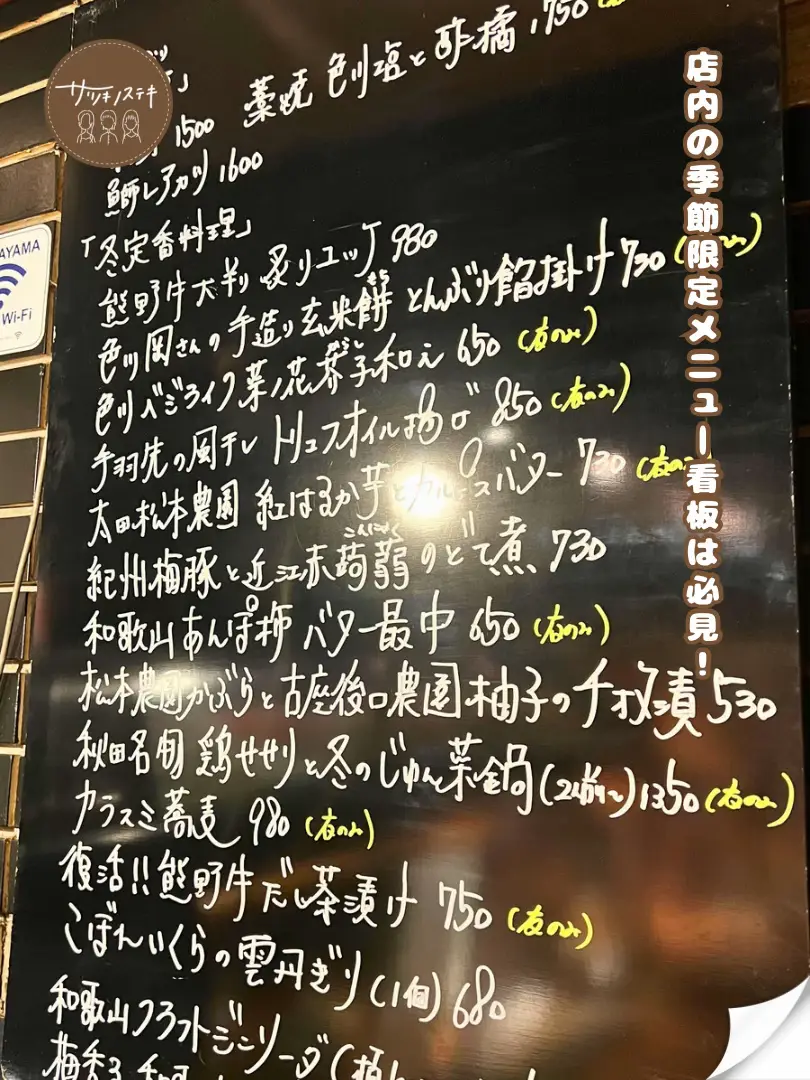 サツキノステキ
店内の季節限定メニュー看板は必見!
藁焼 色川塩と酢橘 1750
1500
鰤レアカツ 1600
「冬定番料理」
熊野牛大判 炙りユッケ 980
色川岡さんの手造り玄米餅 どんぶり餡掛け 730
もち
色川ベジライフ菜ノ花芥子和え 650 (夜のみ)
からし
手羽先の風干し トリュフオイル揚げ 850 (夜のみ)
太田松本農園 紅はるか芋とカルピスバター 730
紀州梅豚と近江赤蒟蒻のどて煮 730
こんにゃく
和歌山あんぽ柿 バター最中 650 (夜のみ)
松本農園かぶらと古座後口農園柚子の千枚漬 530
秋田名物 鶏せせりと冬のじゅん菜鍋 (2人前〜) 1350 (夜のみ)
カラスミ蕎麦 980 (夜のみ)
復活!!熊野牛だし茶漬け 750 (夜のみ)
こぼれいくらの雲丹ぎり (1個) 680
和歌山クラフトジンソーダ
梅香る 和歌
AYAMA
Wi-Fi